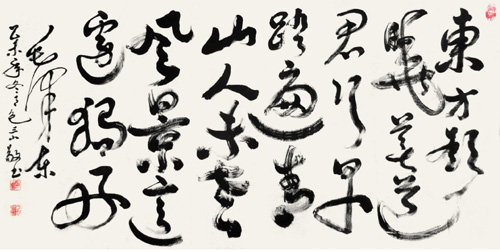 東方欲
曉莫道
君行早
踏遍青
山人未老
风景這
邊獨好
毛澤東
乙未年冬